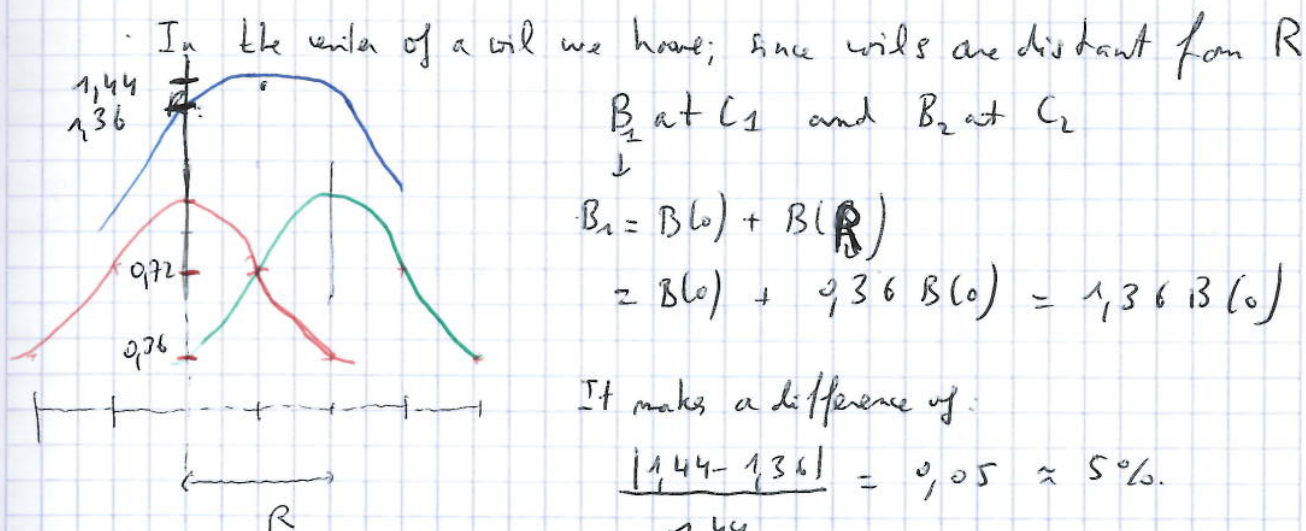 . In the center of a coil we have; since coils are distant from R
1,44
1,36
B1 at C1 and B2 at C2
↓
B1 = B(0) + B(R)
0,72
= B(0) + 0,36 B(0) = 1,36 B(0)
0,36
It makes a difference of:
|1,44-1,36| = 0,05 ≈ 5%.
R
1,44